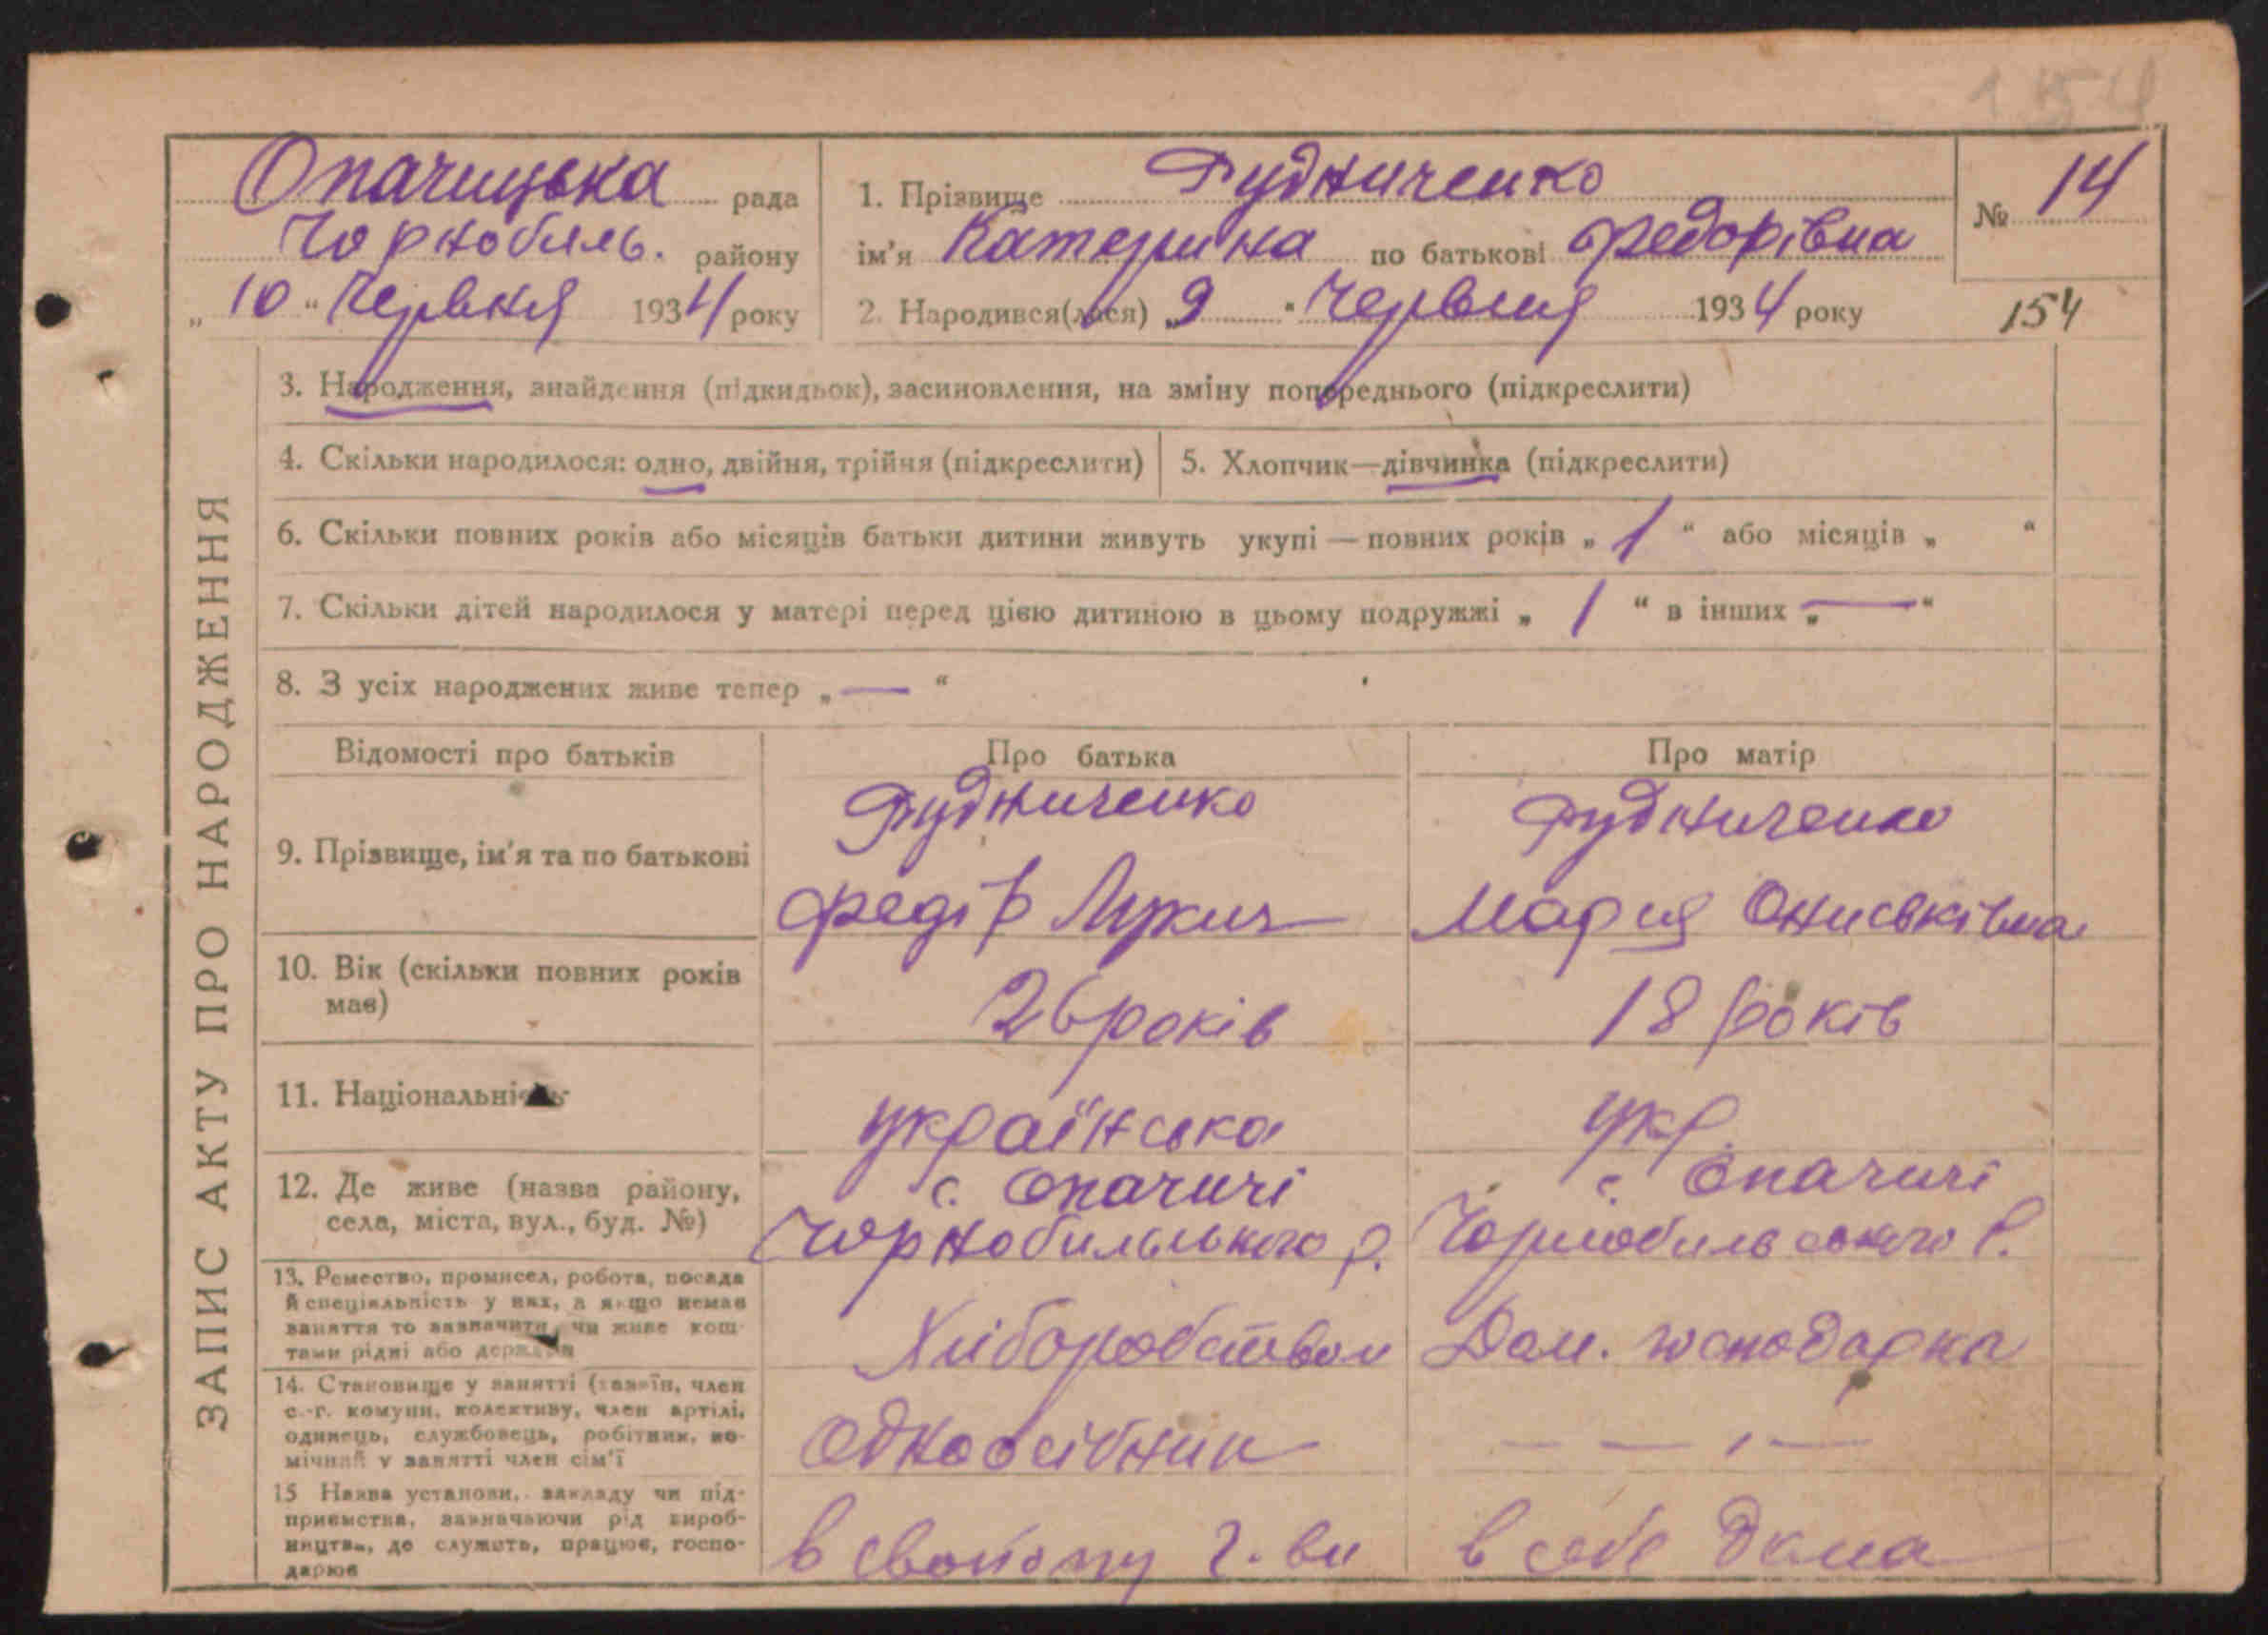 154
Опачицька рада
Чорнобиль. району
„ 10 “ Червня 1934 року
1. Прізвище Рудниченко
ім'я Катерина по батькові Федорівна
2. Народився(лася) „ 9 “ Червня 1934 року
№ 14
154
ЗАПИС АКТУ ПРО НАРОДЖЕННЯ
3. Народження, знайдення (підкидьок), засиновлення, на зміну попереднього (підкреслити)
4. Скільки народилося: одно, двійня, трійня (підкреслити)
5. Хлопчик—дівчинка (підкреслити)
6. Скільки повних років або місяців батьки дитини живуть укупі — повних років „ 1 “ або місяців „ “
7. Скільки дітей народилося у матері перед цією дитиною в цьому подружжі „ 1 “ в інших „ — “
8. З усіх народжених живе тепер „ — “
Відомості про батьків Про батька Про матір
9. Прізвище, ім'я та по батькові
Рудниченко
Федір Лукич
Рудниченко
Мария Ониськівна
10. Вік (скільки повних років
має)
26 років
18 років
11. Національність
українська
укр.
12. Де живе (назва району,
села, міста, вул., буд. №)
с. Опачичі
Чорнобильського р.
с. Опачичі
Чорнобильського р.
13. Ремество, промисел, робота, посада
й спеціяльність у них, а якщо немає
заняття то зазначити, чи живе кош-
тами рідні або держави
Хліборобством
Дом. господарка
14. Становище у занятті (хазяїн, член
с.-г. комуни, колективу, член артілі,
одинець, службовець, робітник, по-
мічний у занятті член сім'ї
Одноосібник
— — „ —
15 Назва установи, закладу чи під-
приємства, зазначаючи рід вироб-
ництва, де служить, працює, госпо-
дарює
в свойому г-ви
в себе дома